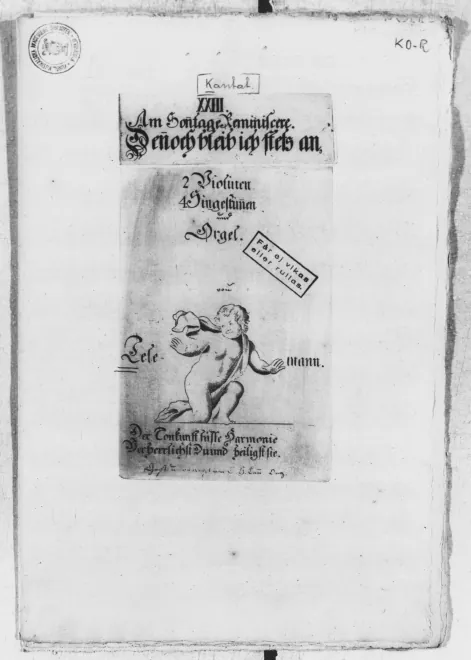 KO-R
Kantat.
XXIII.
Am Sontage Reminiscere.
Dennoch bleib ich stets an.
2 Violinen
4 Singestimmen
und
Orgel.
Får ej vikas
eller rullas.
von
Tele- mann.
Der Tonkunst süsse Harmonie
Verherrlichst Du und heiligst sie.